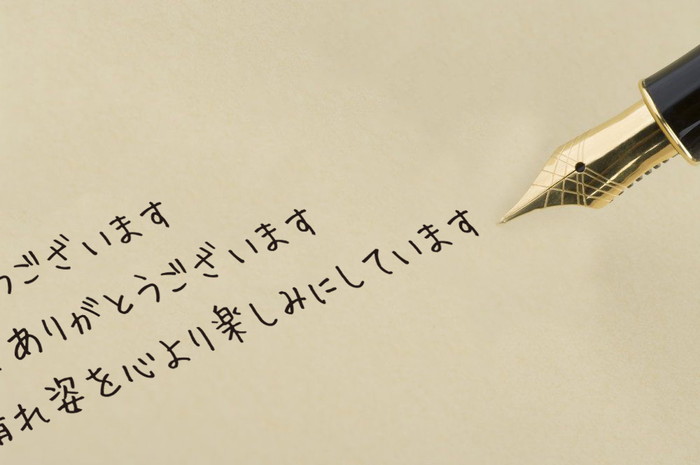 うございます
ありがとうございます
晴れ姿を心より楽しみにしています